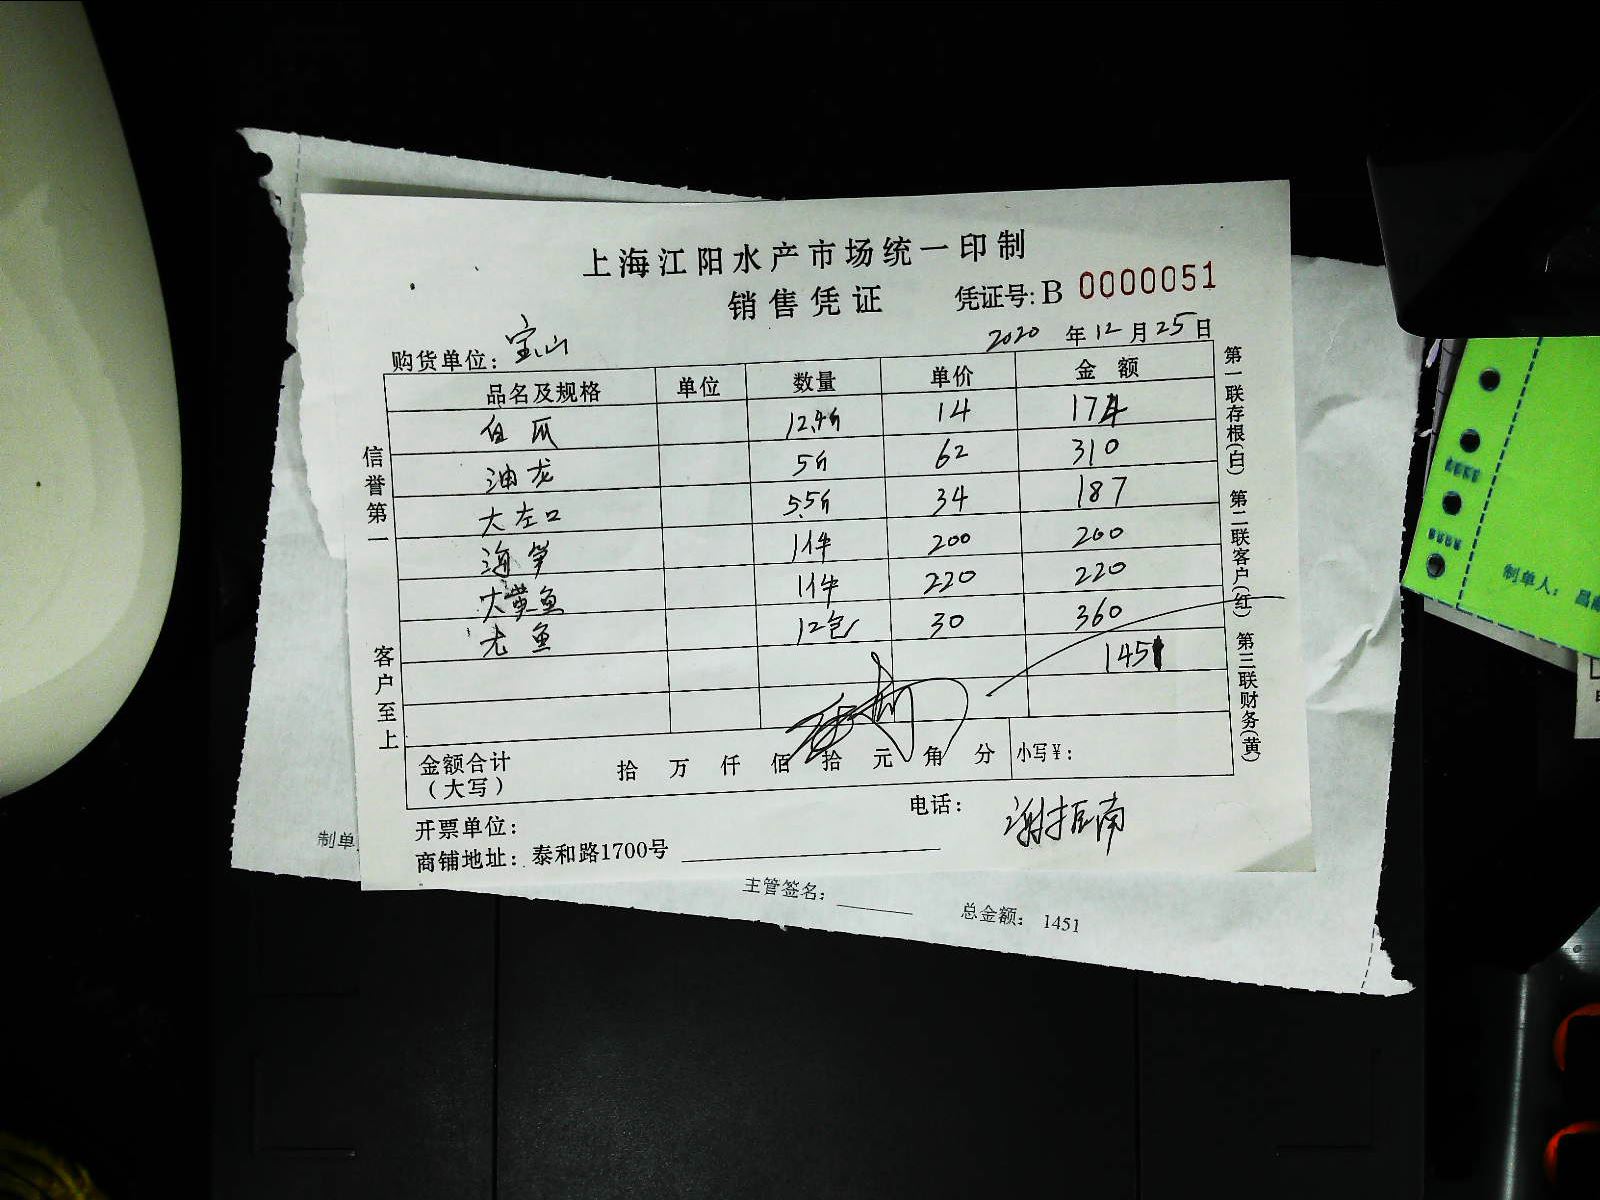 上海江阳水产市场统一印制
销售凭证 凭证号: B 0000051
购货单位: 宝山 2020 年 12 月 25 日
品名及规格 单位 数量 单价 金额
白瓜 12.4斤 14 174
油龙 5斤 62 310
大左口 5.5斤 34 187
海笋 1件 200 200
大黄鱼 1件 220 220
龙鱼 12包 30 360
1451
金额合计 拾 万 仟 佰 拾 元 角 分 小写¥:
(大写)
开票单位: 电话: 谢振南
商铺地址: 泰和路1700号
信誉第一
客户至上
第一联存根(白) 第二联客户(红) 第三联财务(黄)
制单
主管签名: 总金额: 1451
制单人: